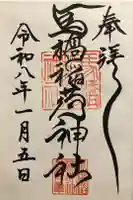 奉拝
馬橋稲荷神社
令和八年一月五日